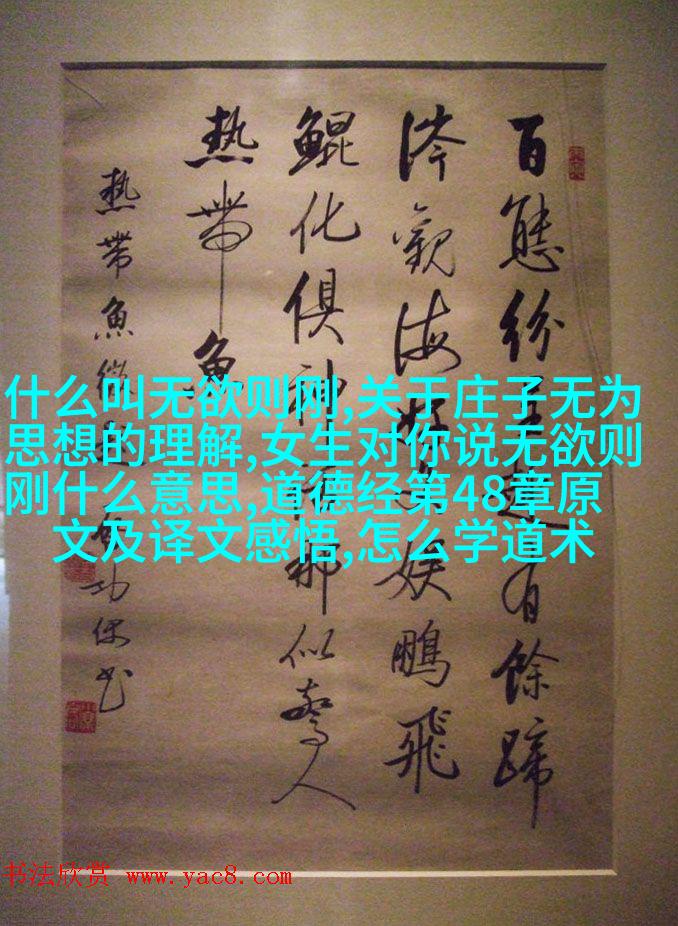 百態紛呈趣有餘蹄
涔觀海好娛鵬飛
鯤化俱神話那似驚人
熱帶魚
熱帶魚 功保書
什么叫无欲则刚,关于庄子无为
思想的理解,女生对你说无欲则
刚什么意思,道德经第48章原
文及译文感悟,怎么学道术
书法欣赏 www.yac8.com